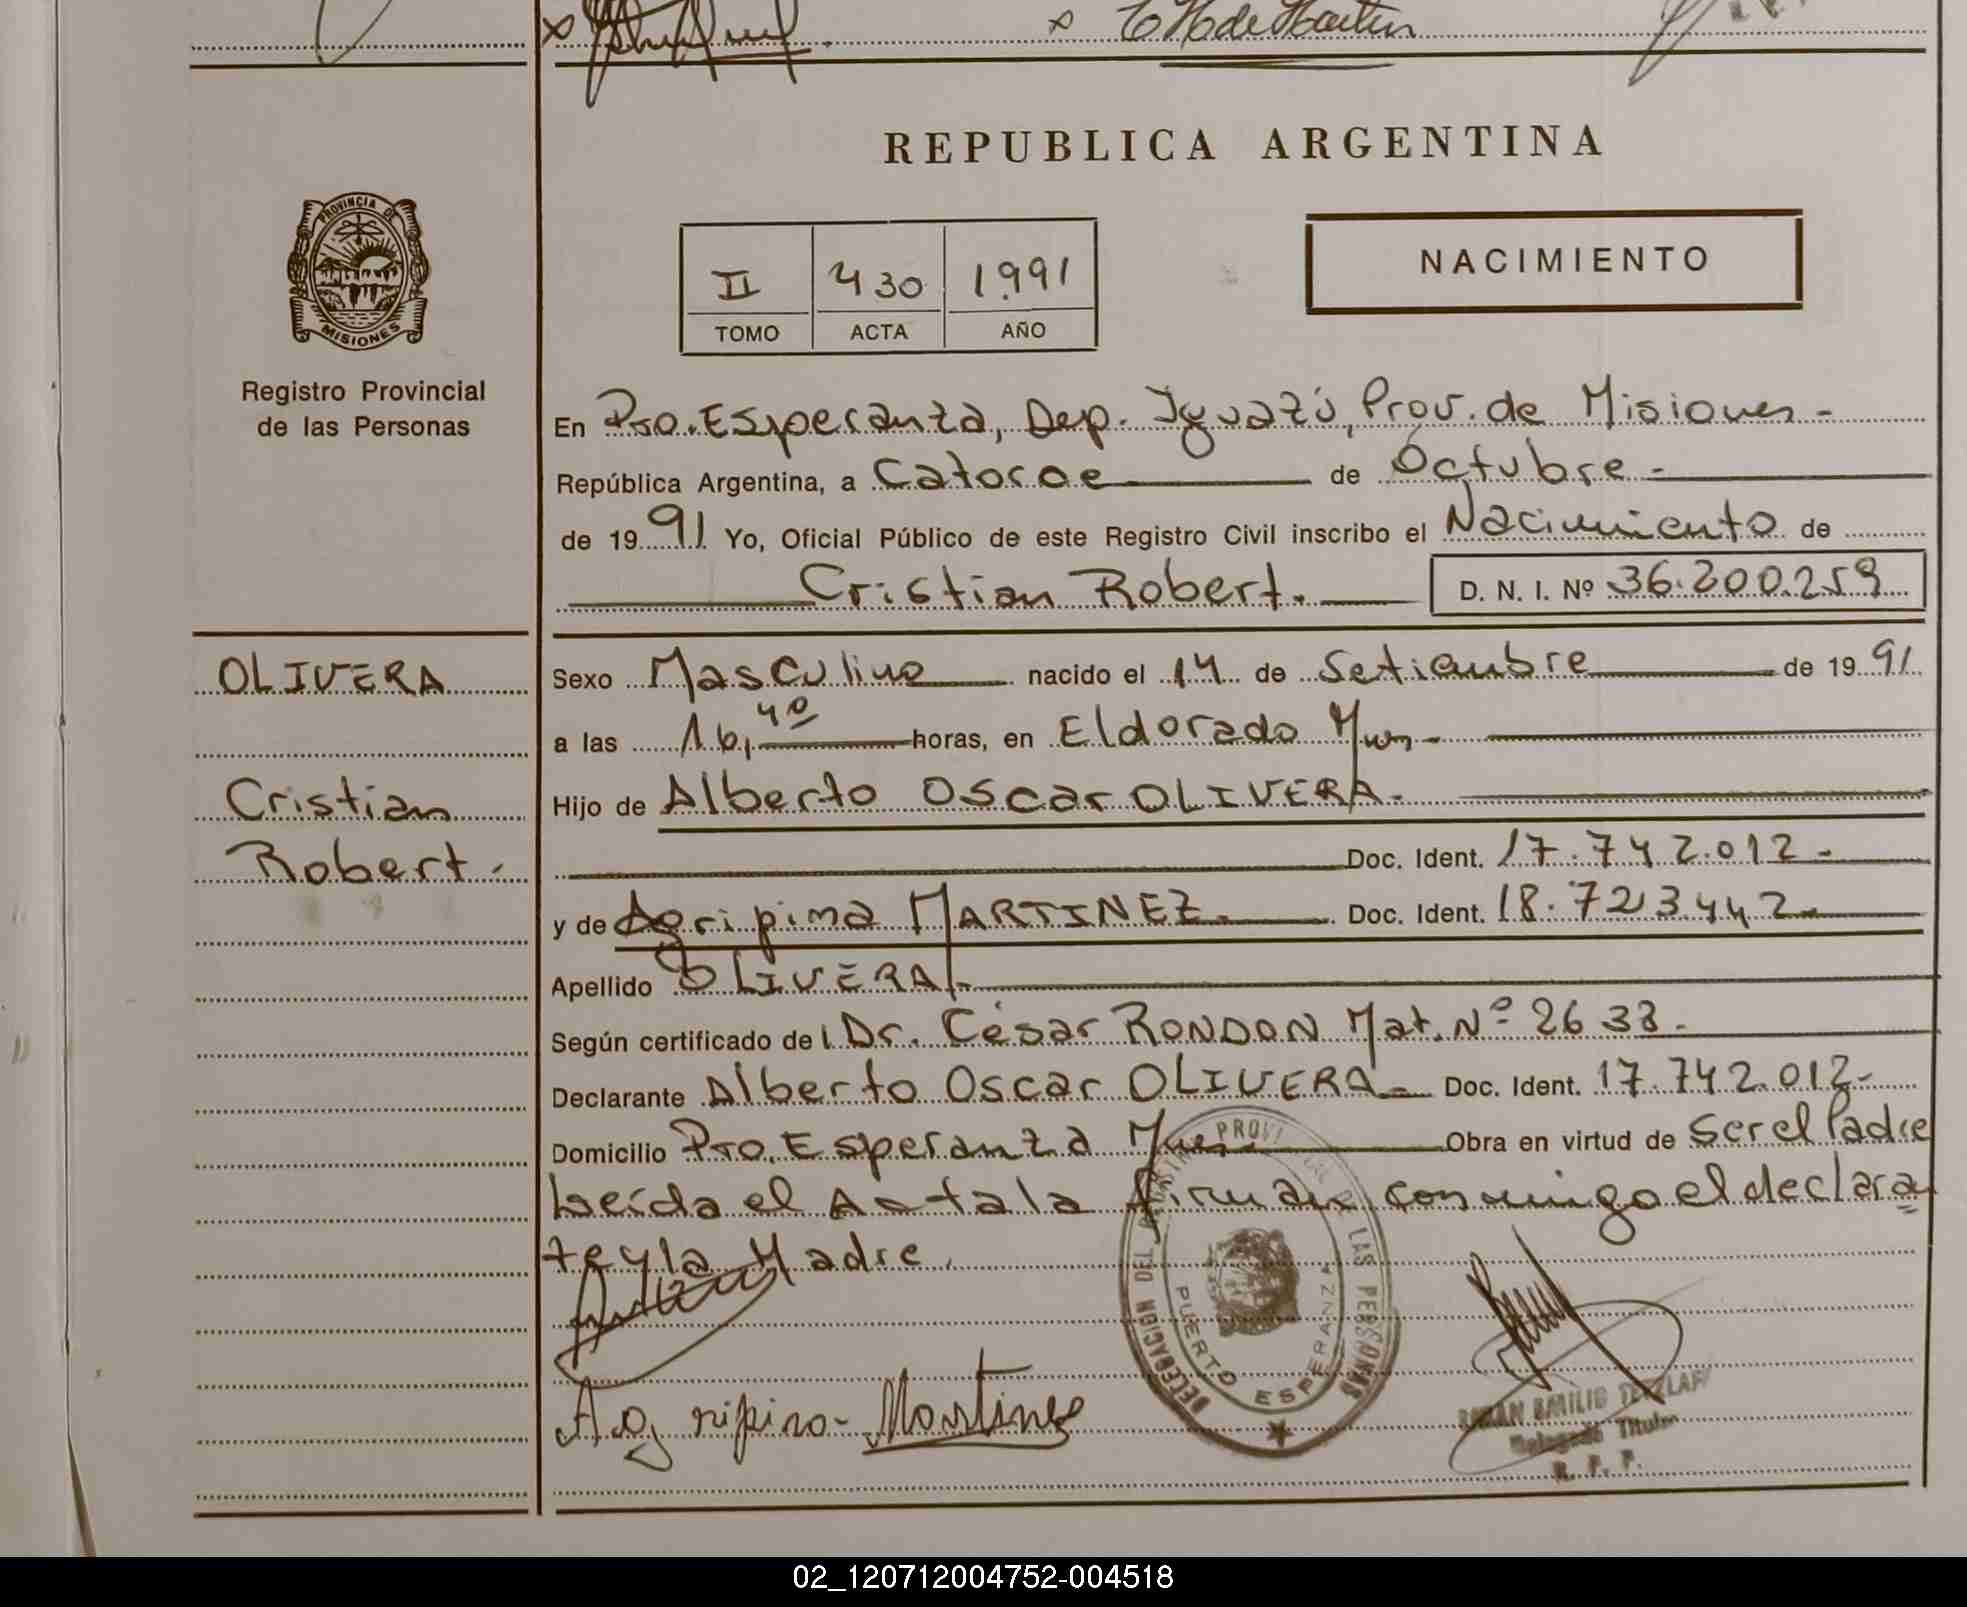 E H de Martin
REPUBLICA ARGENTINA
PROVINCIA DE
MISIONES
Registro Provincial
de las Personas
II 430 1.991
TOMO ACTA AÑO
NACIMIENTO
En Pto. Esperanza, Dep. Iguazú, Prov. de Misiones -
República Argentina, a Catorce de Octubre -
de 1991 Yo, Oficial Público de este Registro Civil inscribo el Nacimiento de
Cristian Robert. D. N. I. Nº 36.200.259
OLIVERA
Cristian
Robert.
Sexo Masculino nacido el 14 de Setiembre de 1991
a las 16,40 horas, en Eldorado Mnes.
Hijo de Alberto Oscar OLIVERA.
Doc. Ident. 17.742.012 -
y de Agripina MARTINEZ. Doc. Ident. 18.723.442 -
Apellido OLIVERA. -
Según certificado del Dr. César RONDON Mat. Nº 2633 -
Declarante Alberto Oscar OLIVERA - Doc. Ident. 17.742.012 -
Domicilio Pto. Esperanza Mnes. Obra en virtud de Ser el Padre
Leída el Acta la firman conmigo el declaran
te y la Madre.
Agripina - Martinez
DELEGACION DEL REGISTRO PROVINCIAL DE LAS PERSONAS
PUERTO ESPERANZA
EMILIO
Delegado Titular
R. P. P.
02_120712004752-004518